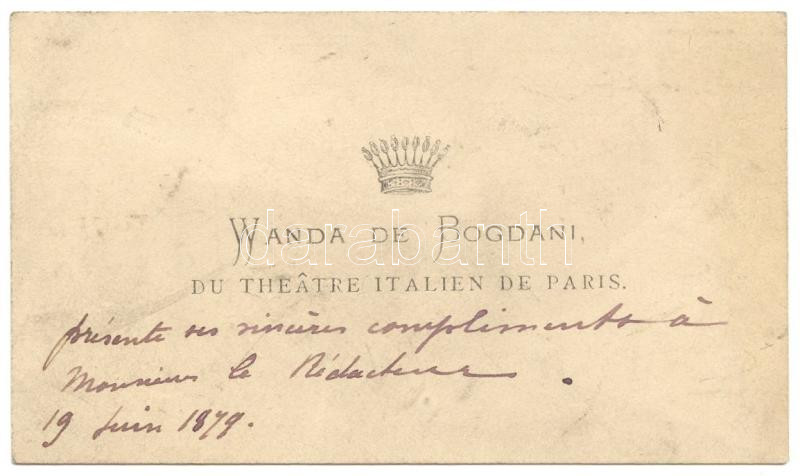 WANDA DE BOGDANI,
darabanth
DU THEÂTRE ITALIEN DE PARIS.
présente ses sincères compliments à
Monsieur le Rédacteur .
19 Juin 1879.